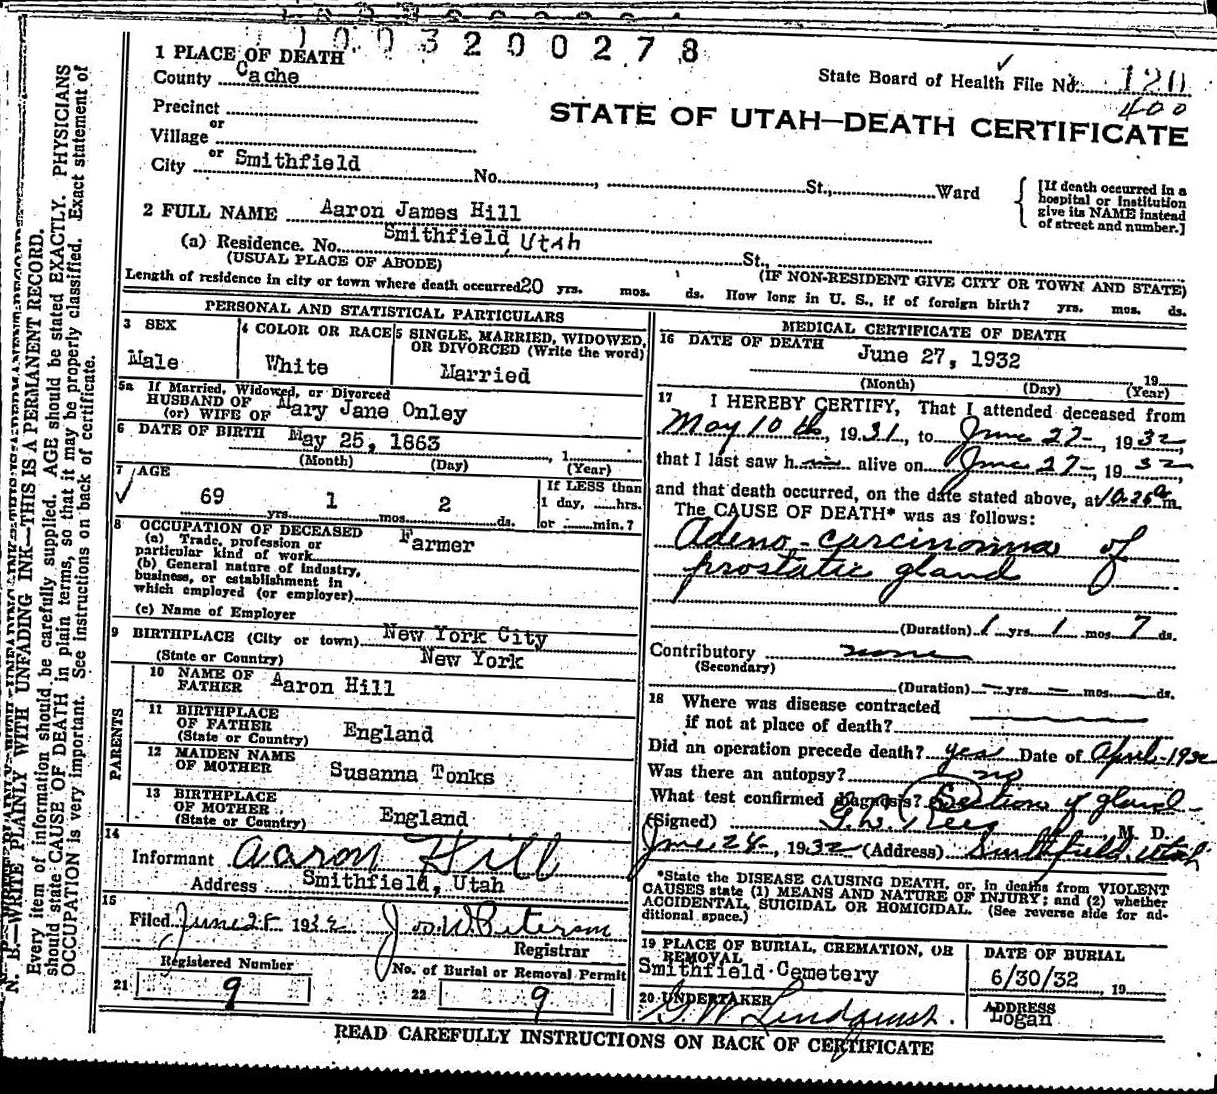 1003200278
1 PLACE OF DEATH
County Cache
State Board of Health File No. 120
400
Precinct
or
Village
or
City Smithfield No. , St., Ward
STATE OF UTAH—DEATH CERTIFICATE
[If death occurred in a
hospital or institution
give its NAME instead
of street and number.]
2 FULL NAME Aaron James Hill
(a) Residence. No. Smithfield, Utah St.,
(USUAL PLACE OF ABODE) (IF NON-RESIDENT GIVE CITY OR TOWN AND STATE)
Length of residence in city or town where death occurred 20 yrs. mos. ds. How long in U. S., if of foreign birth? yrs. mos. ds.
PERSONAL AND STATISTICAL PARTICULARS
3 SEX
Male
4 COLOR OR RACE
White
5 SINGLE, MARRIED, WIDOWED,
OR DIVORCED (Write the word)
Married
5a If Married, Widowed, or Divorced
HUSBAND OF
(or) WIFE OF Mary Jane Onley
6 DATE OF BIRTH May 25, 1863 , 1
(Month) (Day) (Year)
7 AGE
69 yrs. 1 mos. 2 ds.
If LESS than
1 day, hrs.
or min.?
8 OCCUPATION OF DECEASED
(a) Trade, profession or
particular kind of work Farmer
(b) General nature of industry,
business, or establishment in
which employed (or employer)
(c) Name of Employer
9 BIRTHPLACE (City or town) New York City
(State or Country) New York
PARENTS
10 NAME OF
FATHER Aaron Hill
11 BIRTHPLACE
OF FATHER
(State or Country) England
12 MAIDEN NAME
OF MOTHER Susanna Tonks
13 BIRTHPLACE
OF MOTHER
(State or Country) England
14
Informant Aaron Hill
Address Smithfield, Utah
15
Filed June 28 1932 Jos. W. Peterson
Registrar
Registered Number
21 9
No. of Burial or Removal Permit
22 9
MEDICAL CERTIFICATE OF DEATH
16 DATE OF DEATH June 27, 1932 19
(Month) (Day) (Year)
17 I HEREBY CERTIFY, That I attended deceased from
May 10th, 1931, to June 27-, 1932,
that I last saw him alive on June 27-, 1932
and that death occurred, on the date stated above, at 10.25a m.
The CAUSE OF DEATH* was as follows:
Adeno-carcinoma of
prostatic gland
(Duration) 1 yrs. 1 mos. 7 ds.
Contributory none
(Secondary)
(Duration) – yrs. – mos. – ds.
18 Where was disease contracted
if not at place of death?
Did an operation precede death? yes Date of April-1932
Was there an autopsy? no
What test confirmed diagnosis? Section of gland-
(Signed) G.W. Rees M. D.
June 28-, 1932 (Address) Smithfield, Utah
*State the DISEASE CAUSING DEATH, or, in deaths from VIOLENT
CAUSES state (1) MEANS AND NATURE OF INJURY; and (2) whether
ACCIDENTAL, SUICIDAL OR HOMICIDAL. (See reverse side for ad-
ditional space.)
19 PLACE OF BURIAL, CREMATION, OR
REMOVAL
Smithfield Cemetery
DATE OF BURIAL
6/30/32 , 19
20 UNDERTAKER
G W Lindquist.
ADDRESS
Logan
READ CAREFULLY INSTRUCTIONS ON BACK OF CERTIFICATE
N. B.—WRITE PLAINLY WITH UNFADING INK—THIS IS A PERMANENT RECORD.
Every item of information should be carefully supplied. AGE should be stated EXACTLY. PHYSICIANS
should state CAUSE OF DEATH in plain terms, so that it may be properly classified. Exact statement of
OCCUPATION is very important. See instructions on back of certificate.